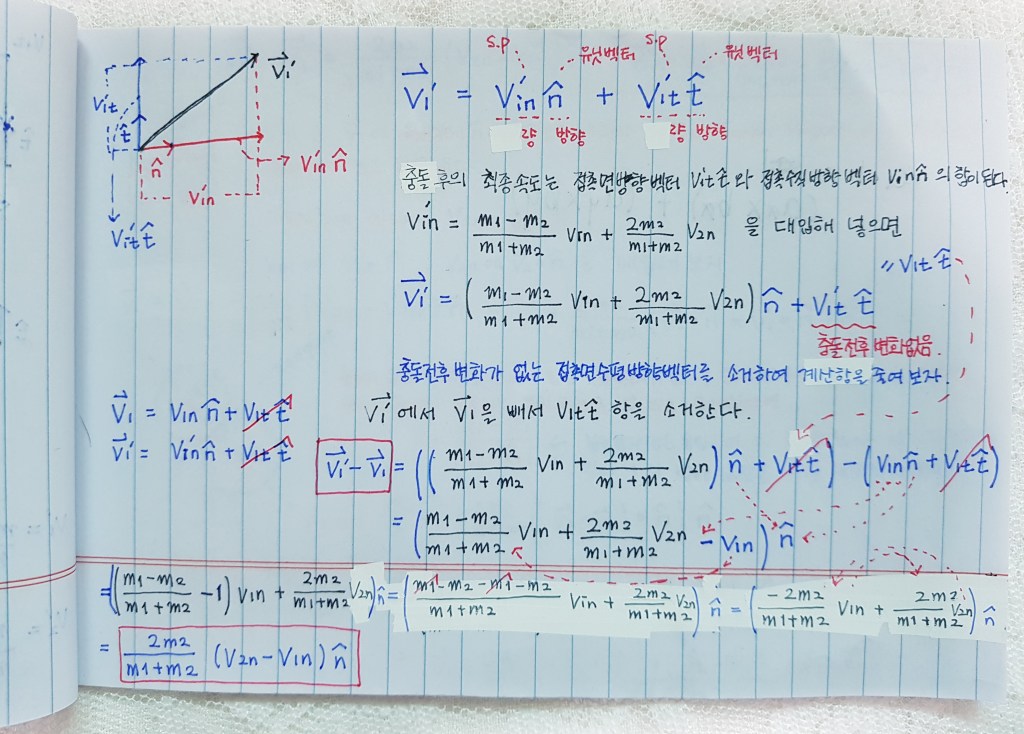 V₁' (vector)
V₁t'
t̂
n̂
V₁n' n̂
V₁n'
V₁t' t̂
s.p 유닛벡터 s.p 유닛벡터
V⃗₁' = V₁n' n̂ + V₁t' t̂
량 방향 량 방향
충돌 후의 최종속도는 접촉면방향벡터 V₁t' t̂ 와 접촉수직방향벡터 V₁n' n̂ 의 합이 된다.
V₁n' = (m1-m2)/(m1+m2) V₁n + 2m2/(m1+m2) V₂n 을 대입해 넣으면
〃V₁t t̂
V⃗₁' = ( (m1-m2)/(m1+m2) V₁n + 2m2/(m1+m2) V₂n ) n̂ + V₁t' t̂
충돌전후 변화없음.
충돌전후 변화가 없는 접촉면수평방향벡터를 소거하여 계산항을 줄여 보자.
V⃗₁ = V₁n n̂ + V₁t t̂
V⃗₁' = V₁n' n̂ + V₁t t̂
V⃗₁' 에서 V⃗₁ 을 빼서 V₁t t̂ 항을 소거한다.
V⃗₁' - V⃗₁ = ( ( (m1-m2)/(m1+m2) V₁n + 2m2/(m1+m2) V₂n ) n̂ + V₁t t̂ ) - ( V₁n n̂ + V₁t t̂ )
= ( (m1-m2)/(m1+m2) V₁n + 2m2/(m1+m2) V₂n - V₁n ) n̂
= ( ( (m1-m2)/(m1+m2) - 1 ) V₁n + 2m2/(m1+m2) V₂n ) n̂ = ( (m1-m2-m1-m2)/(m1+m2) V₁n + 2m2/(m1+m2) V₂n ) n̂ = ( -2m2/(m1+m2) V₁n + 2m2/(m1+m2) V₂n ) n̂
= 2m2/(m1+m2) (V₂n - V₁n) n̂